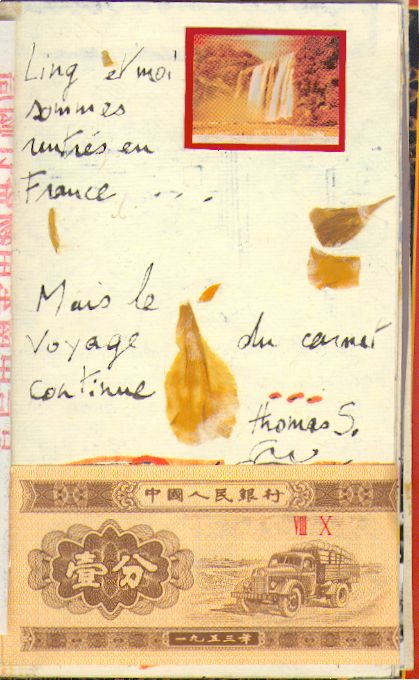 Ling et moi
sommes
rentrés en
France ....
Mais le
voyage du carnet
continue ...
Thomas S.
中國人民銀行
VIII X
壹分
一九五三年